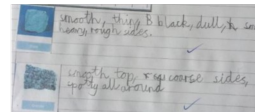 smooth, thin, B black, dull,
heavy, rough sides.
smooth top, coarse sides,
spotty all around